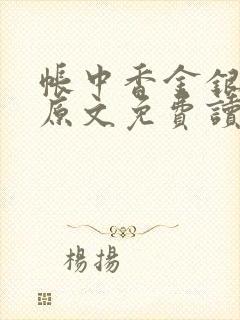 帳中香金銀
原文免費讀
楊揚